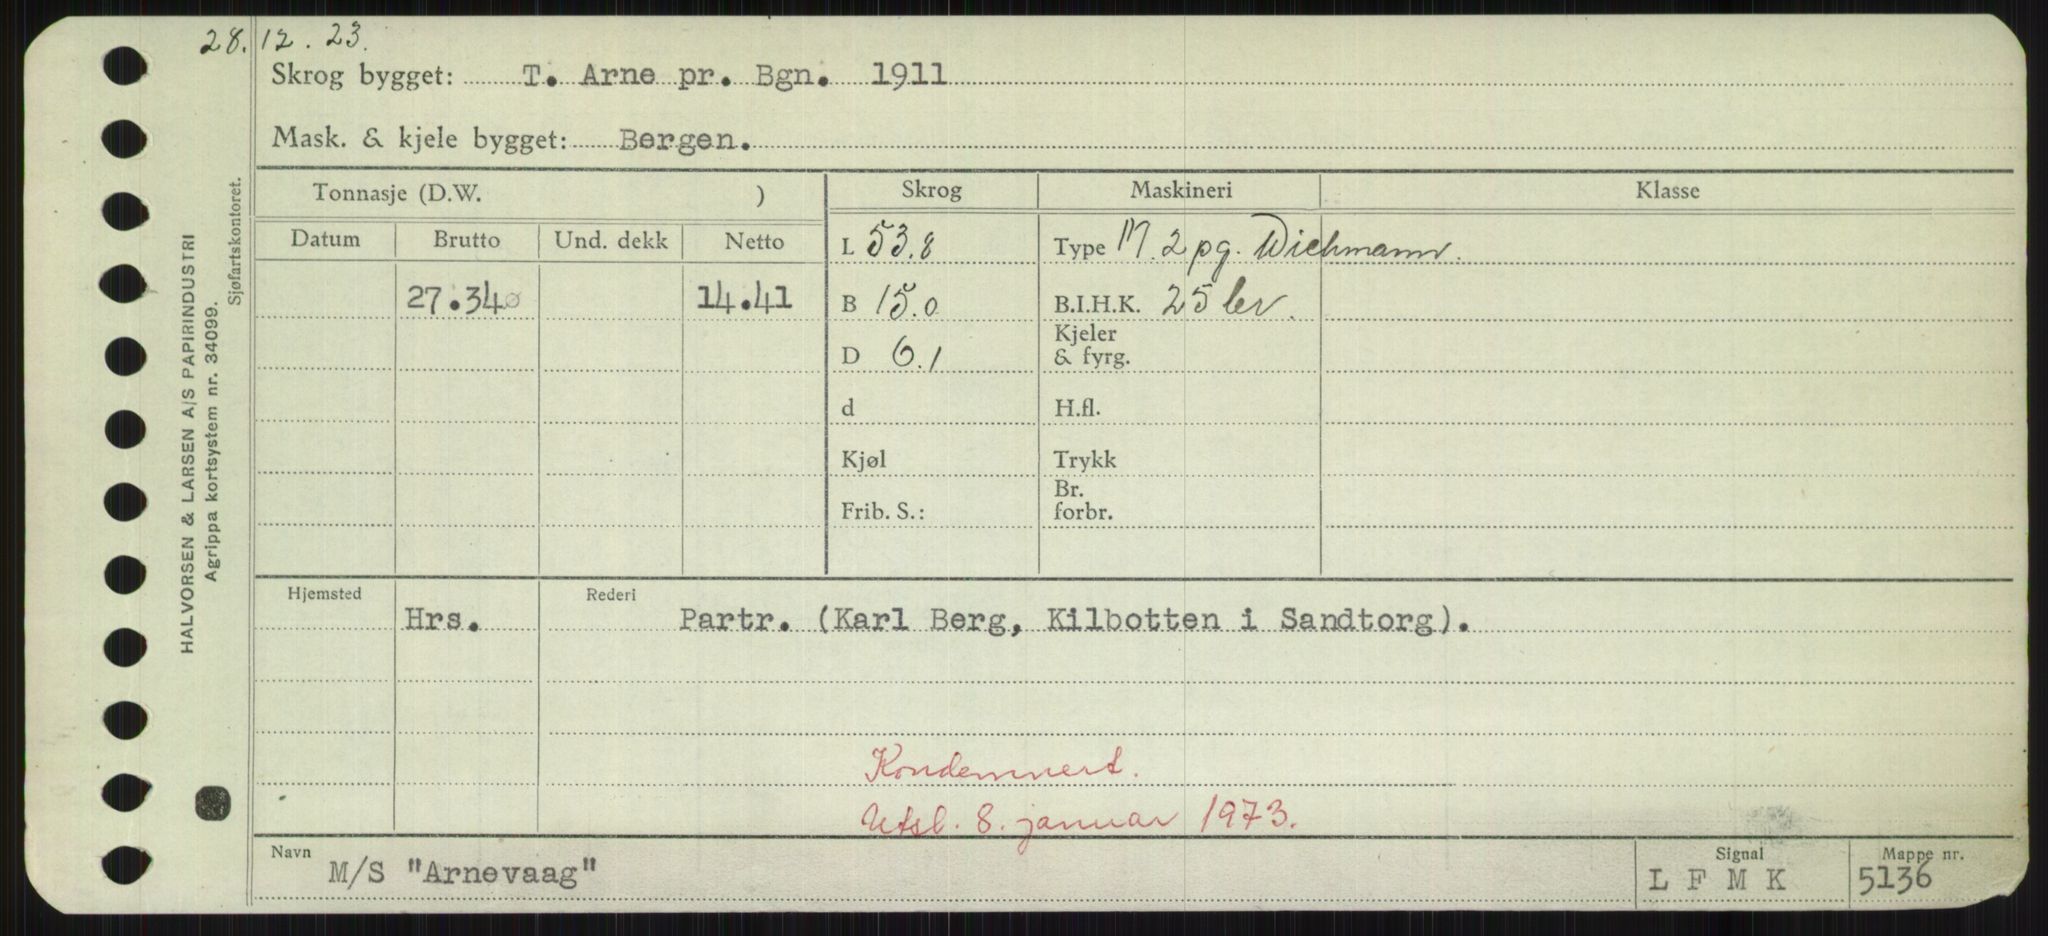 28.12.23.
Skrog bygget: T. Arne pr. Bgn. 1911
Mask. & kjele bygget: Bergen.
Tonnasje (D.W. )
Skrog
Maskineri
Klasse
Datum
Brutto
Und. dekk
Netto
L 53.8
Type M. 2 pg. Wichmann.
27.340
14.41
B 15.0
B.I.H.K. 25 bv.
D 6.1
Kjeler
& fyrg.
d
H.fl.
Kjøl
Trykk
Frib. S.:
Br.
forbr.
Hjemsted
Hrs.
Rederi
Partr. (Karl Berg, Kilbotten i Sandtorg).
Kondemnert.
Utsl. 8. januar 1973.
Navn
M/S "Arnevaag"
Signal
L F M K
Mappe nr.
5136
HALVORSEN & LARSEN A/S PAPIRINDUSTRI
Agrippa kortsystem nr. 34099.
Sjøfartskontoret.